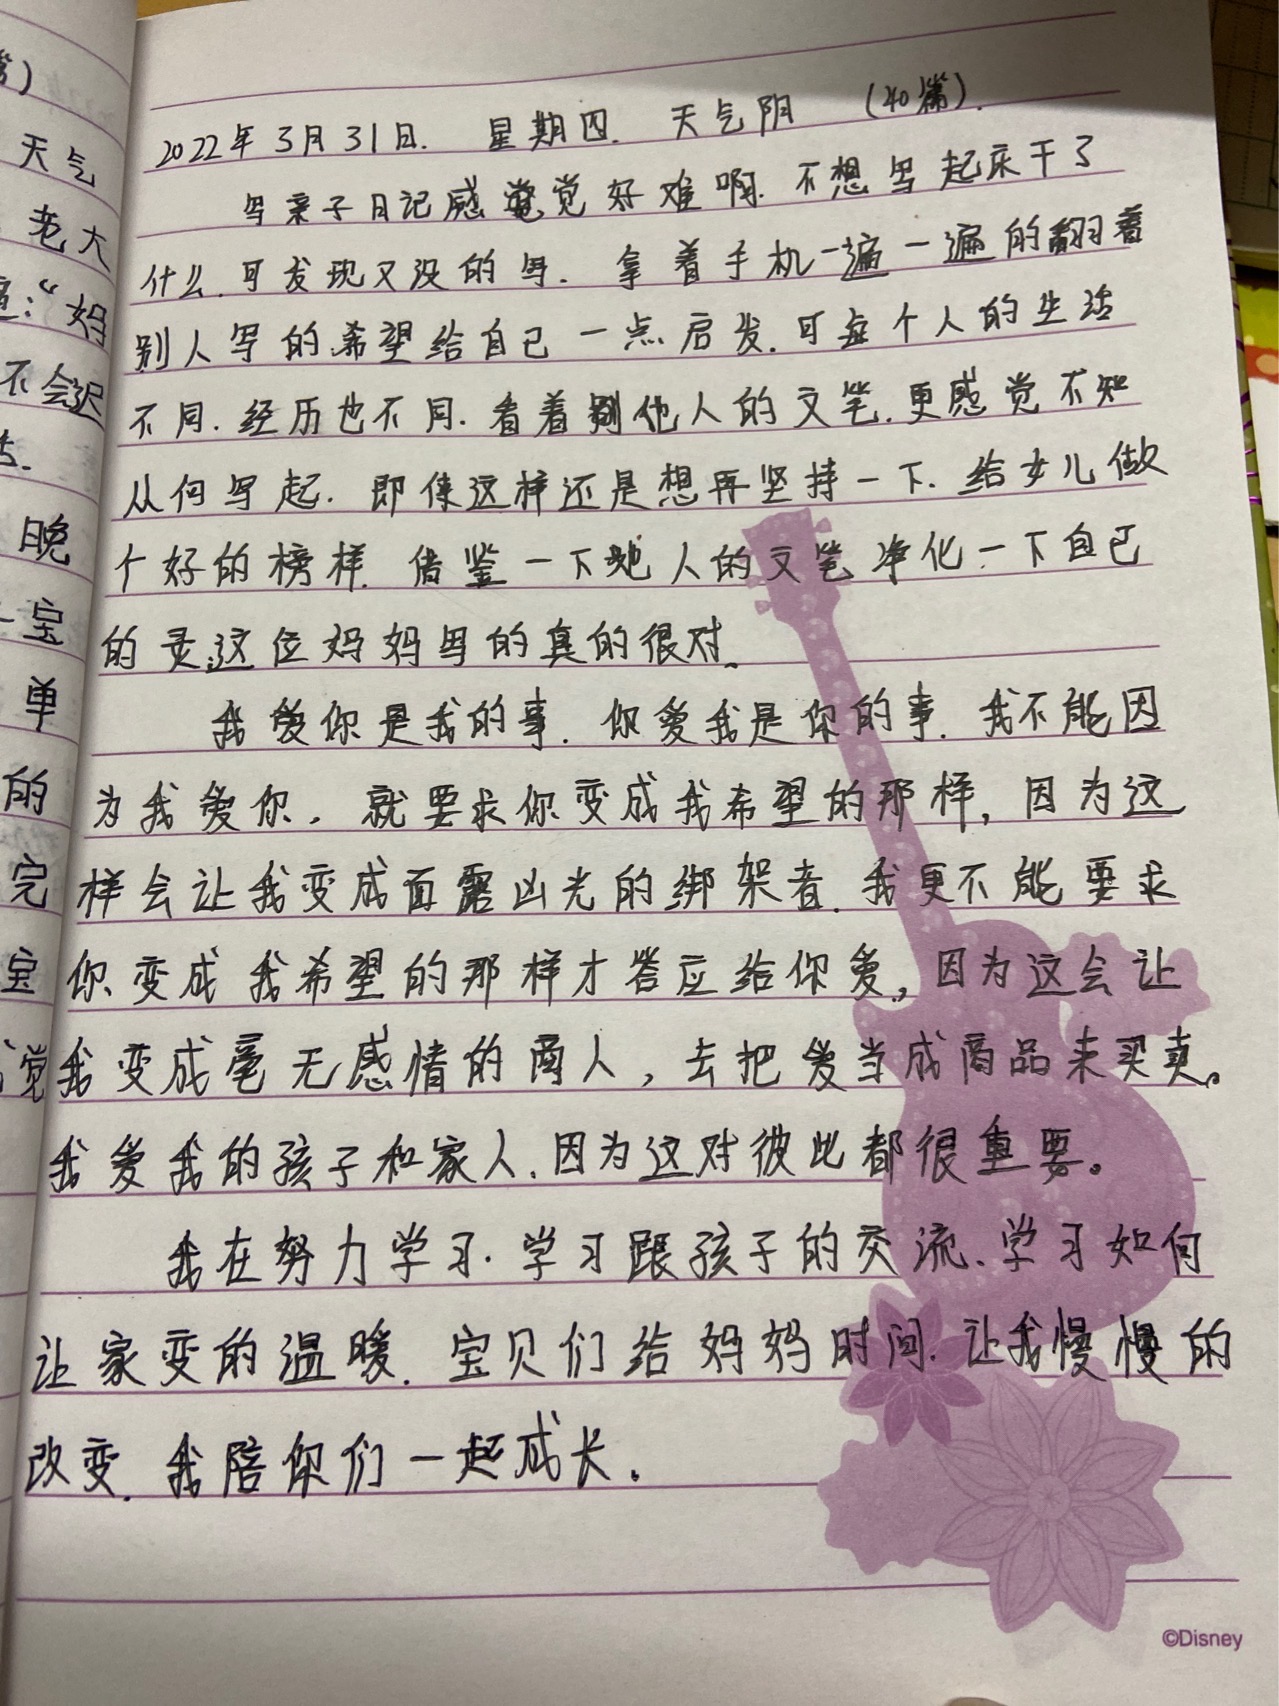 篇)
天气
老大
"妈
不会迟
晚
宝
单
的
完
宝
觉
2022年3月31日. 星期四. 天气阴 (40篇).
写亲子日记感觉好难啊.不想写起床干了
什么.可发现又没的写.拿着手机一遍一遍的翻着
别人写的.希望给自己一点启发.可每个人的生活
不同.经历也不同.看着别他人的文笔.更感觉不知
从何写起.即使这样还是想再坚持一下.给女儿做
个好的榜样.借鉴一下她人的文笔净化一下自己
的灵.这位妈妈写的真的很对。
我爱你是我的事.你爱我是你的事.我不能因
为我爱你,就要求你变成我希望的那样,因为这
样会让我变成面露凶光的绑架者.我更不能要求
你变成我希望的那样才答应给你爱,因为这会让
我变成毫无感情的商人,去把爱当成商品来买卖。
我爱我的孩子和家人.因为这对彼此都很重要。
我在努力学习.学习跟孩子的交流.学习如何
让家变的温暖.宝贝们给妈妈时间.让我慢慢的
改变.我陪你们一起成长.
©Disney